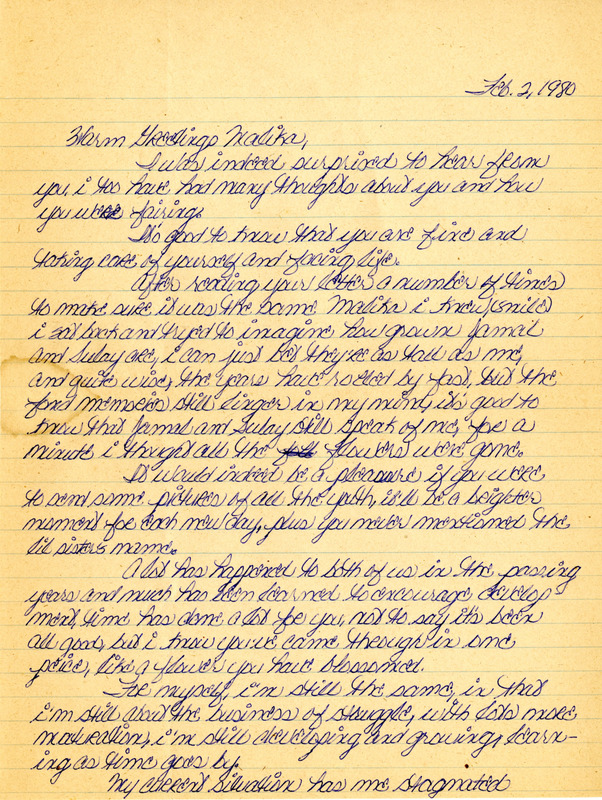 Feb. 2, 1980
Warm Greetings Malika,
I was indeed surprized to hear from
you, i too have had many thoughts about you and how
you were fairing.
It's good to know that you are fine and
taking care of yourself and facing life.
After reading your letter a number of times
to make sure it was the same Malika i knew, (smile)
i sat back and tryed to imagine how grown Jamail
and Sulay are, i can just bet they're as tall as me,
and quite wise, the years have rolled by fast, but the
fond memories still linger in my mind, it's good to
know that Jamal and Sulay still speak of me, for a
minute i thought all the flowers were gone.
It would indeed be a pleasure if you were
to send some pictures of all the youth, it'll be a brighter
moment for each new day, plus you never mentioned the
lil sisters name.
A lot has happened to both of us in the passing
years and much has been learned to encourage develop
ment, time has done a lot for you, not to say it's been
all good, but i know you've came through in one
peice, like a flower you have blossomed.
For myself, i'm still the same, in that
i'm still about the business of struggle, with lots more
maturation, i'm still developing and growing, learn-
ing as time goes by.
My current situation has me stagnated